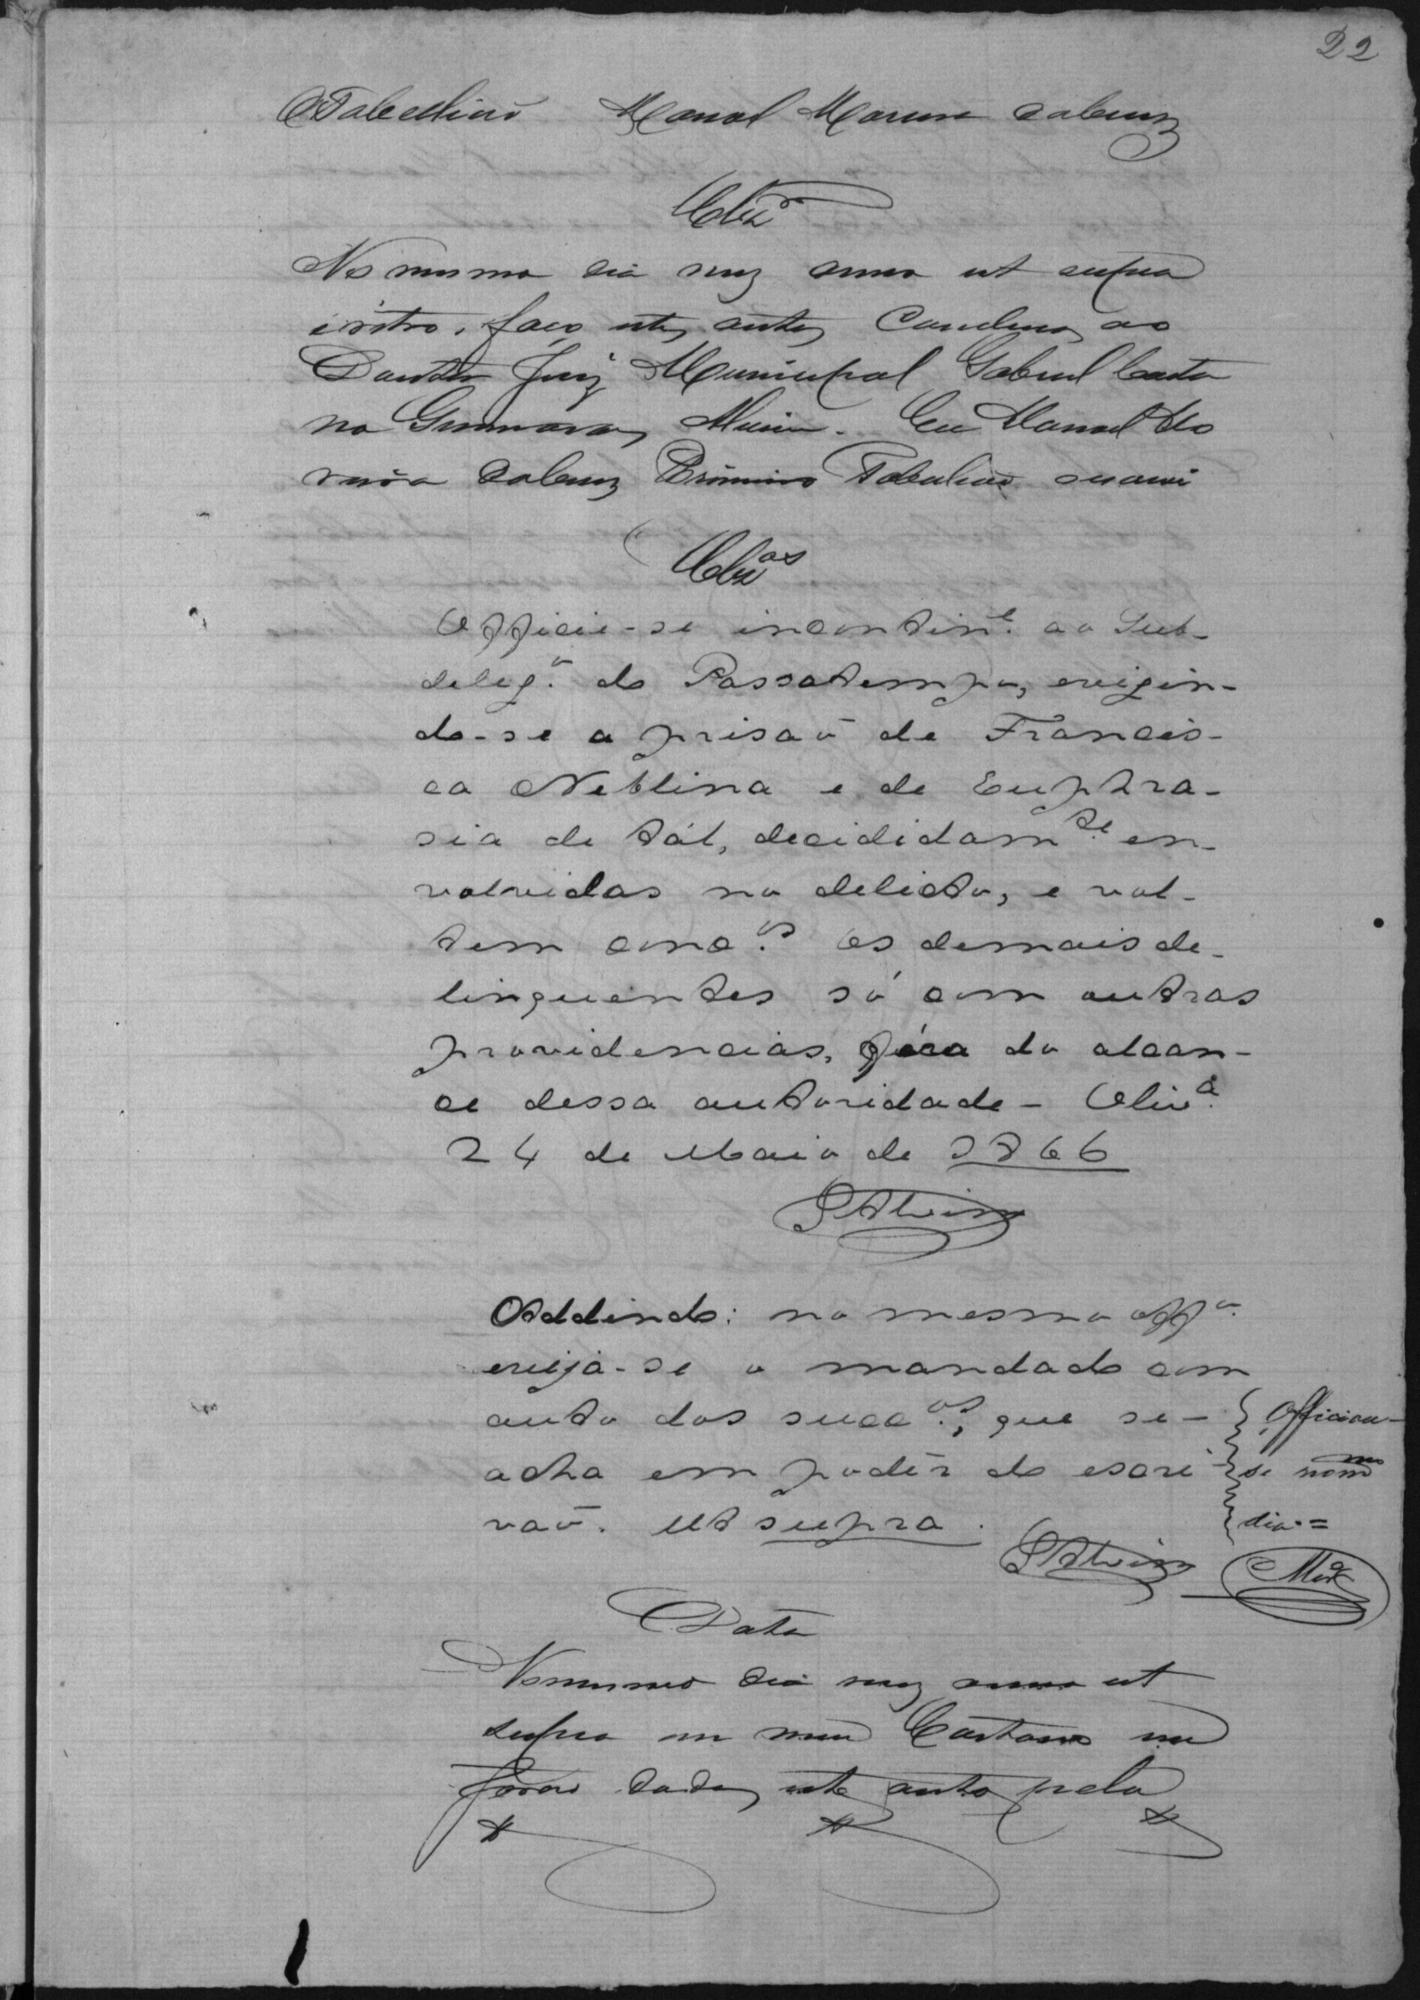 22
O Tabellião Manoel
Clz.o
No mesmo dia mez anno ut supra
faço estes autos Concluzos ao
Doutor Juiz Municipal Gabriel Caeta
no Eu Manoel Mo
Tabelião
Clz.os
Officie-se incontin.e ao Sub-
deleg.o do Passatempo, exigin-
do-se a prisaõ de Francis-
ca Neblina e de Euphra-
sia de tál, decididam.te en-
volvidas no delicto, e vol-
tem conc.os Os demais de-
linquentes só com outras
providencias, fóra do alcan-
ce dessa autoridade - Oliv.a
24 de Maio de 1866
Addindo: no mesmo off.o
exija-se o mandado com
auto dos succ.os, que se-
acha em poder do escri-
vaõ. Ut supra.
Officiou-
se no m.mo
dia =
Data
No mesmo dia mez anno ut
supra em meu Cartorio me
forão dados este autos pelo